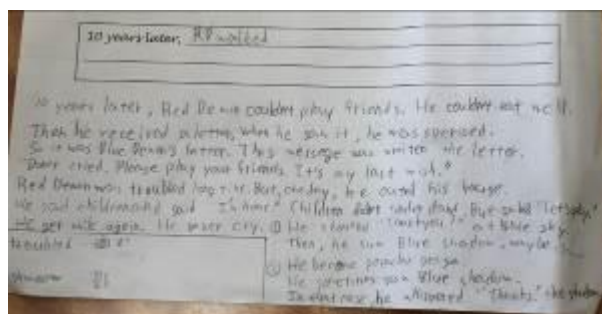 10 years later, RD walked
10 years later, Red Demon couldn't play friends. He couldn't eat well.
Then he received a letter, when he saw it, he was
So it was Blue Demon's letter. This message was writen the letter.
Don't cried. Please play your friends. It's my last wish."
Red Demon was troubled long time. But, one day, he outed his house.
He said children and said "I'm home" Children didn't understand, But said "let's play"
He never cry. ① He shouted at blue sky.
troubled
Then, he saw Blue shadow, maybe.
② He became
He sometimes saw Blue shadow.
In that case, he whispered "Thanks," the shadow